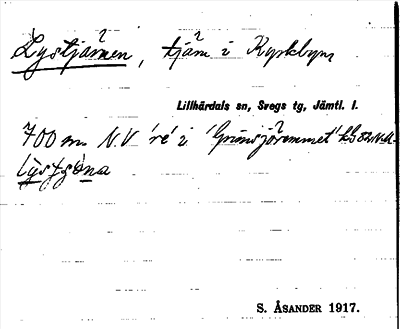 Lystjärnen, tjärn i Kyrkbyn,
Lillhärdals sn, Svegs tg, Jämtl. l.
700 m N.V 're' i 'Grimsjöremmet'
S. ÅSANDER 1917.